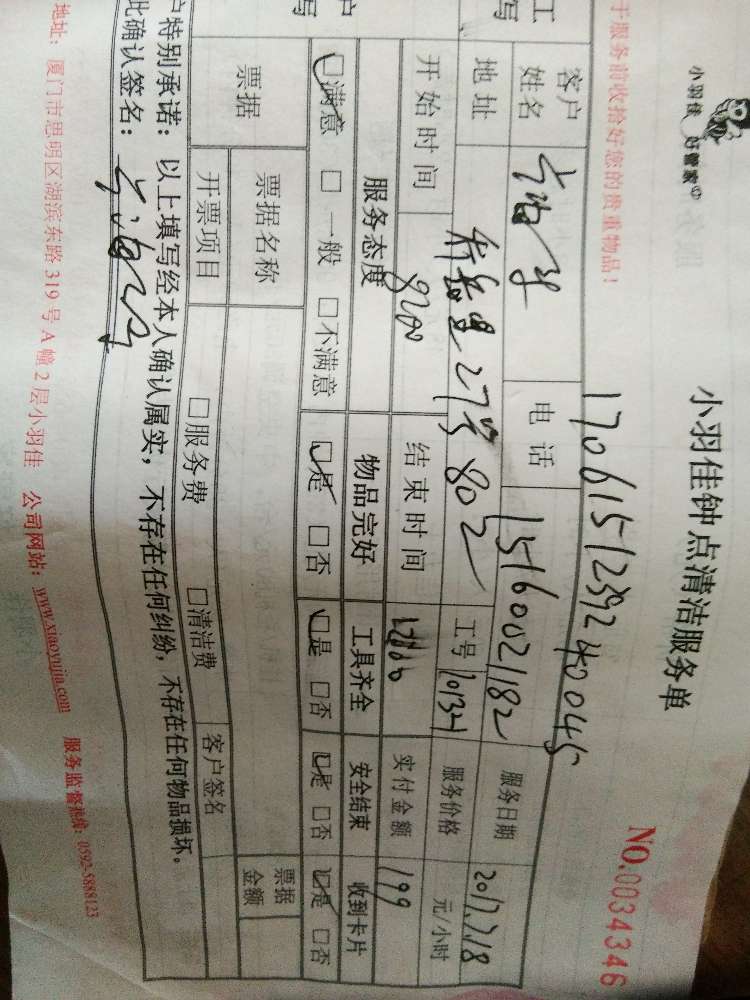 小羽佳 好管家
小羽佳钟点清洁服务单
NO.0034346
于服务前收拾好您的贵重物品!
1706151239240045
工
写
客户
姓名
电话
15160021182
服务日期
2017.7.18
地址
27号802
工号
服务价格
元/小时
开始时间
8200
结束时间
实付金额
199
户
写
服务态度
物品完好
工具齐全
安全结束
收到卡片
□满意 □一般 □不满意
□是 □否
□是 □否
□是 □否
□是 □否
票据
票据名称
票据
金额
开票项目
□服务费 □清洁费
客户签名
户特别承诺:以上填写经本人确认属实,不存在任何纠纷,不存在任何物品损坏。
此确认签名:
地址:厦门市思明区湖滨东路319号A幢2层小羽佳 公司网站:www.xiaoyujia.com 服务监督热线:0592-5888123